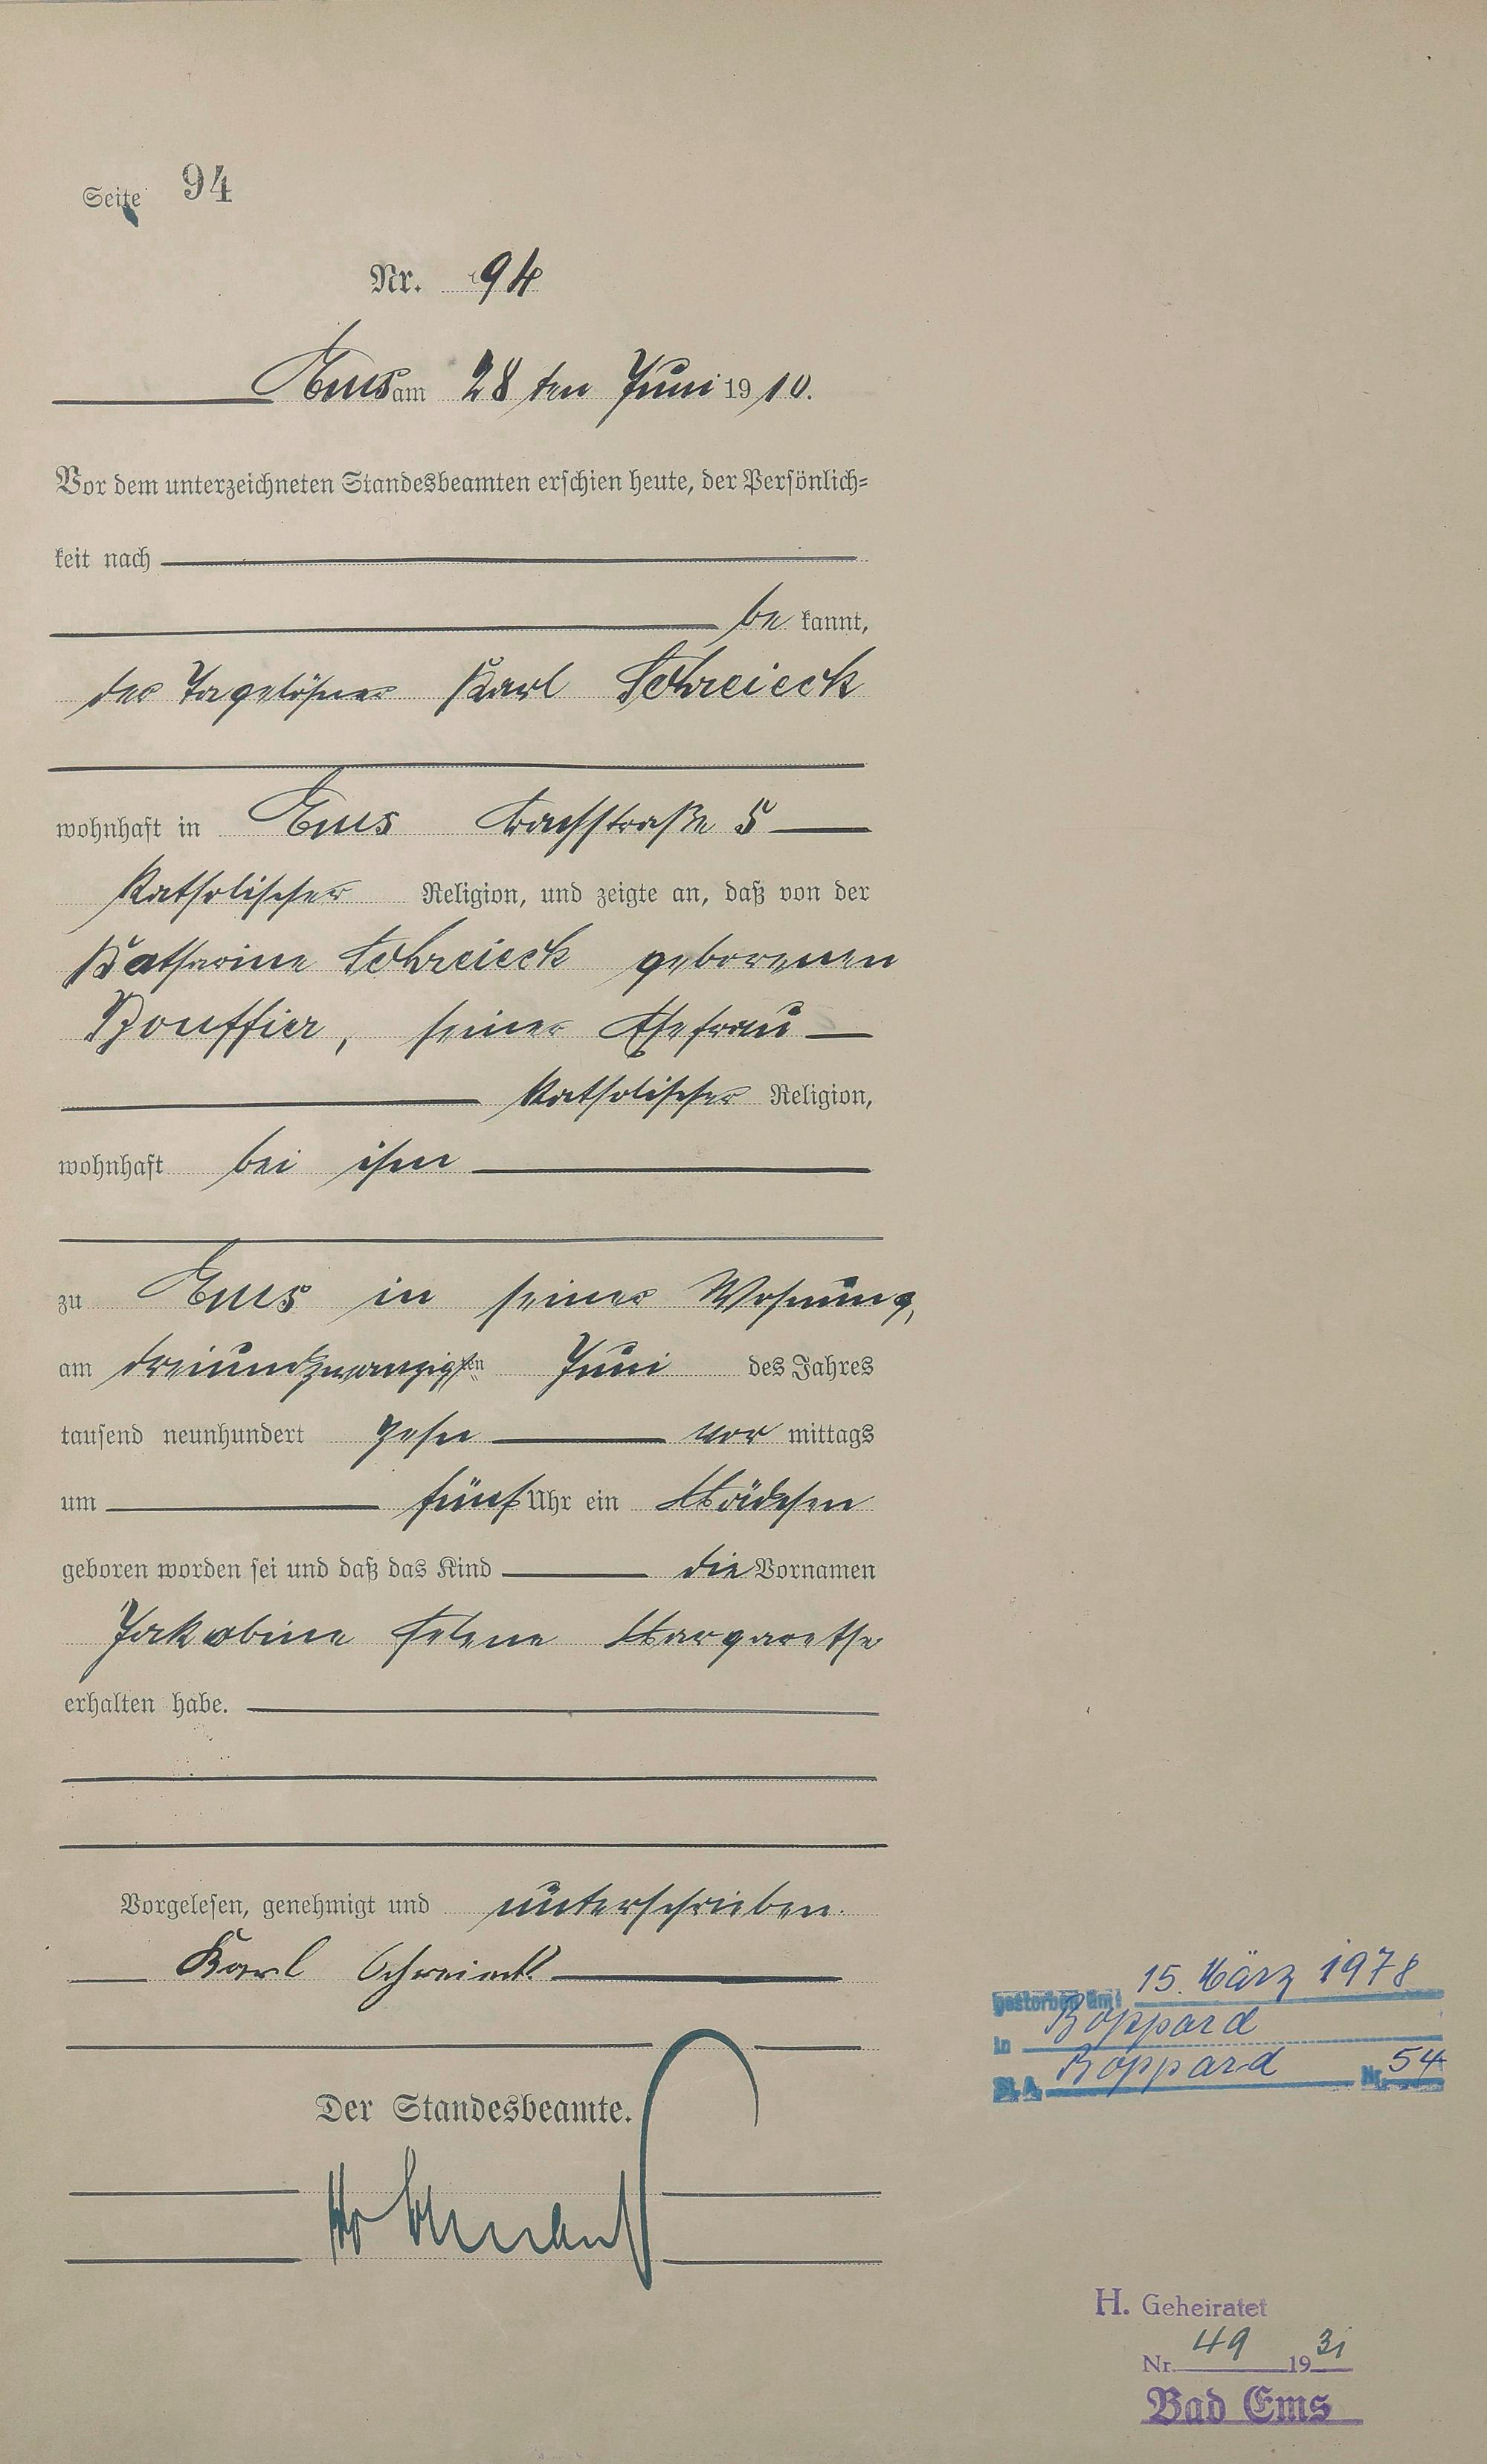 Seite 94
Nr. 94
Ems am 28 ten Juni 1910.
Vor dem unterzeichneten Standesbeamten erschien heute, der Persönlich=
keit nach
be kannt,
der Tagelöhner Karl Schreieck
wohnhaft in Ems Bachstraße 5
Katholischer Religion, und zeigte an, daß von der
Katharine Schreieck geborenen
Bouffier, seiner Ehefrau
Katholischer Religion,
wohnhaft bei ihm
zu Ems in seiner Wohnung,
am dreiundzwanzigsten Juni des Jahres
tausend neunhundert zehn vor mittags
um fünf Uhr ein Mädchen
geboren worden sei und daß das Kind die Vornamen
Jakobine Helene Margarethe
erhalten habe.
Vorgelesen, genehmigt und unterschrieben.
Karl Schreieck
Der Standesbeamte.
gestorben am: 15. März 1978
in Boppard
St. A. Boppard Nr. 54
H. Geheiratet
Nr. 49 1931
Bad Ems